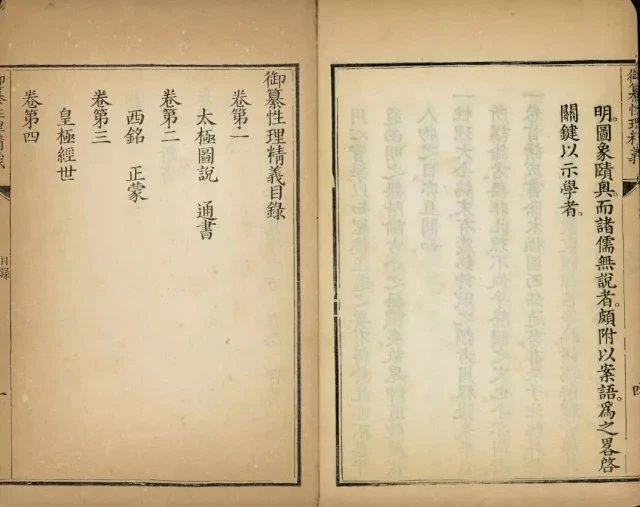 御纂性理精義
明。圖象蹟奧。而諸儒無說者。頗附以案語。爲之畧啓
關鍵以示學者。
四
御纂性理精義目錄
卷第一
太極圖說 通書
卷第二
西銘 正蒙
卷第三
皇極經世
卷第四
御纂性理精義
目錄
一